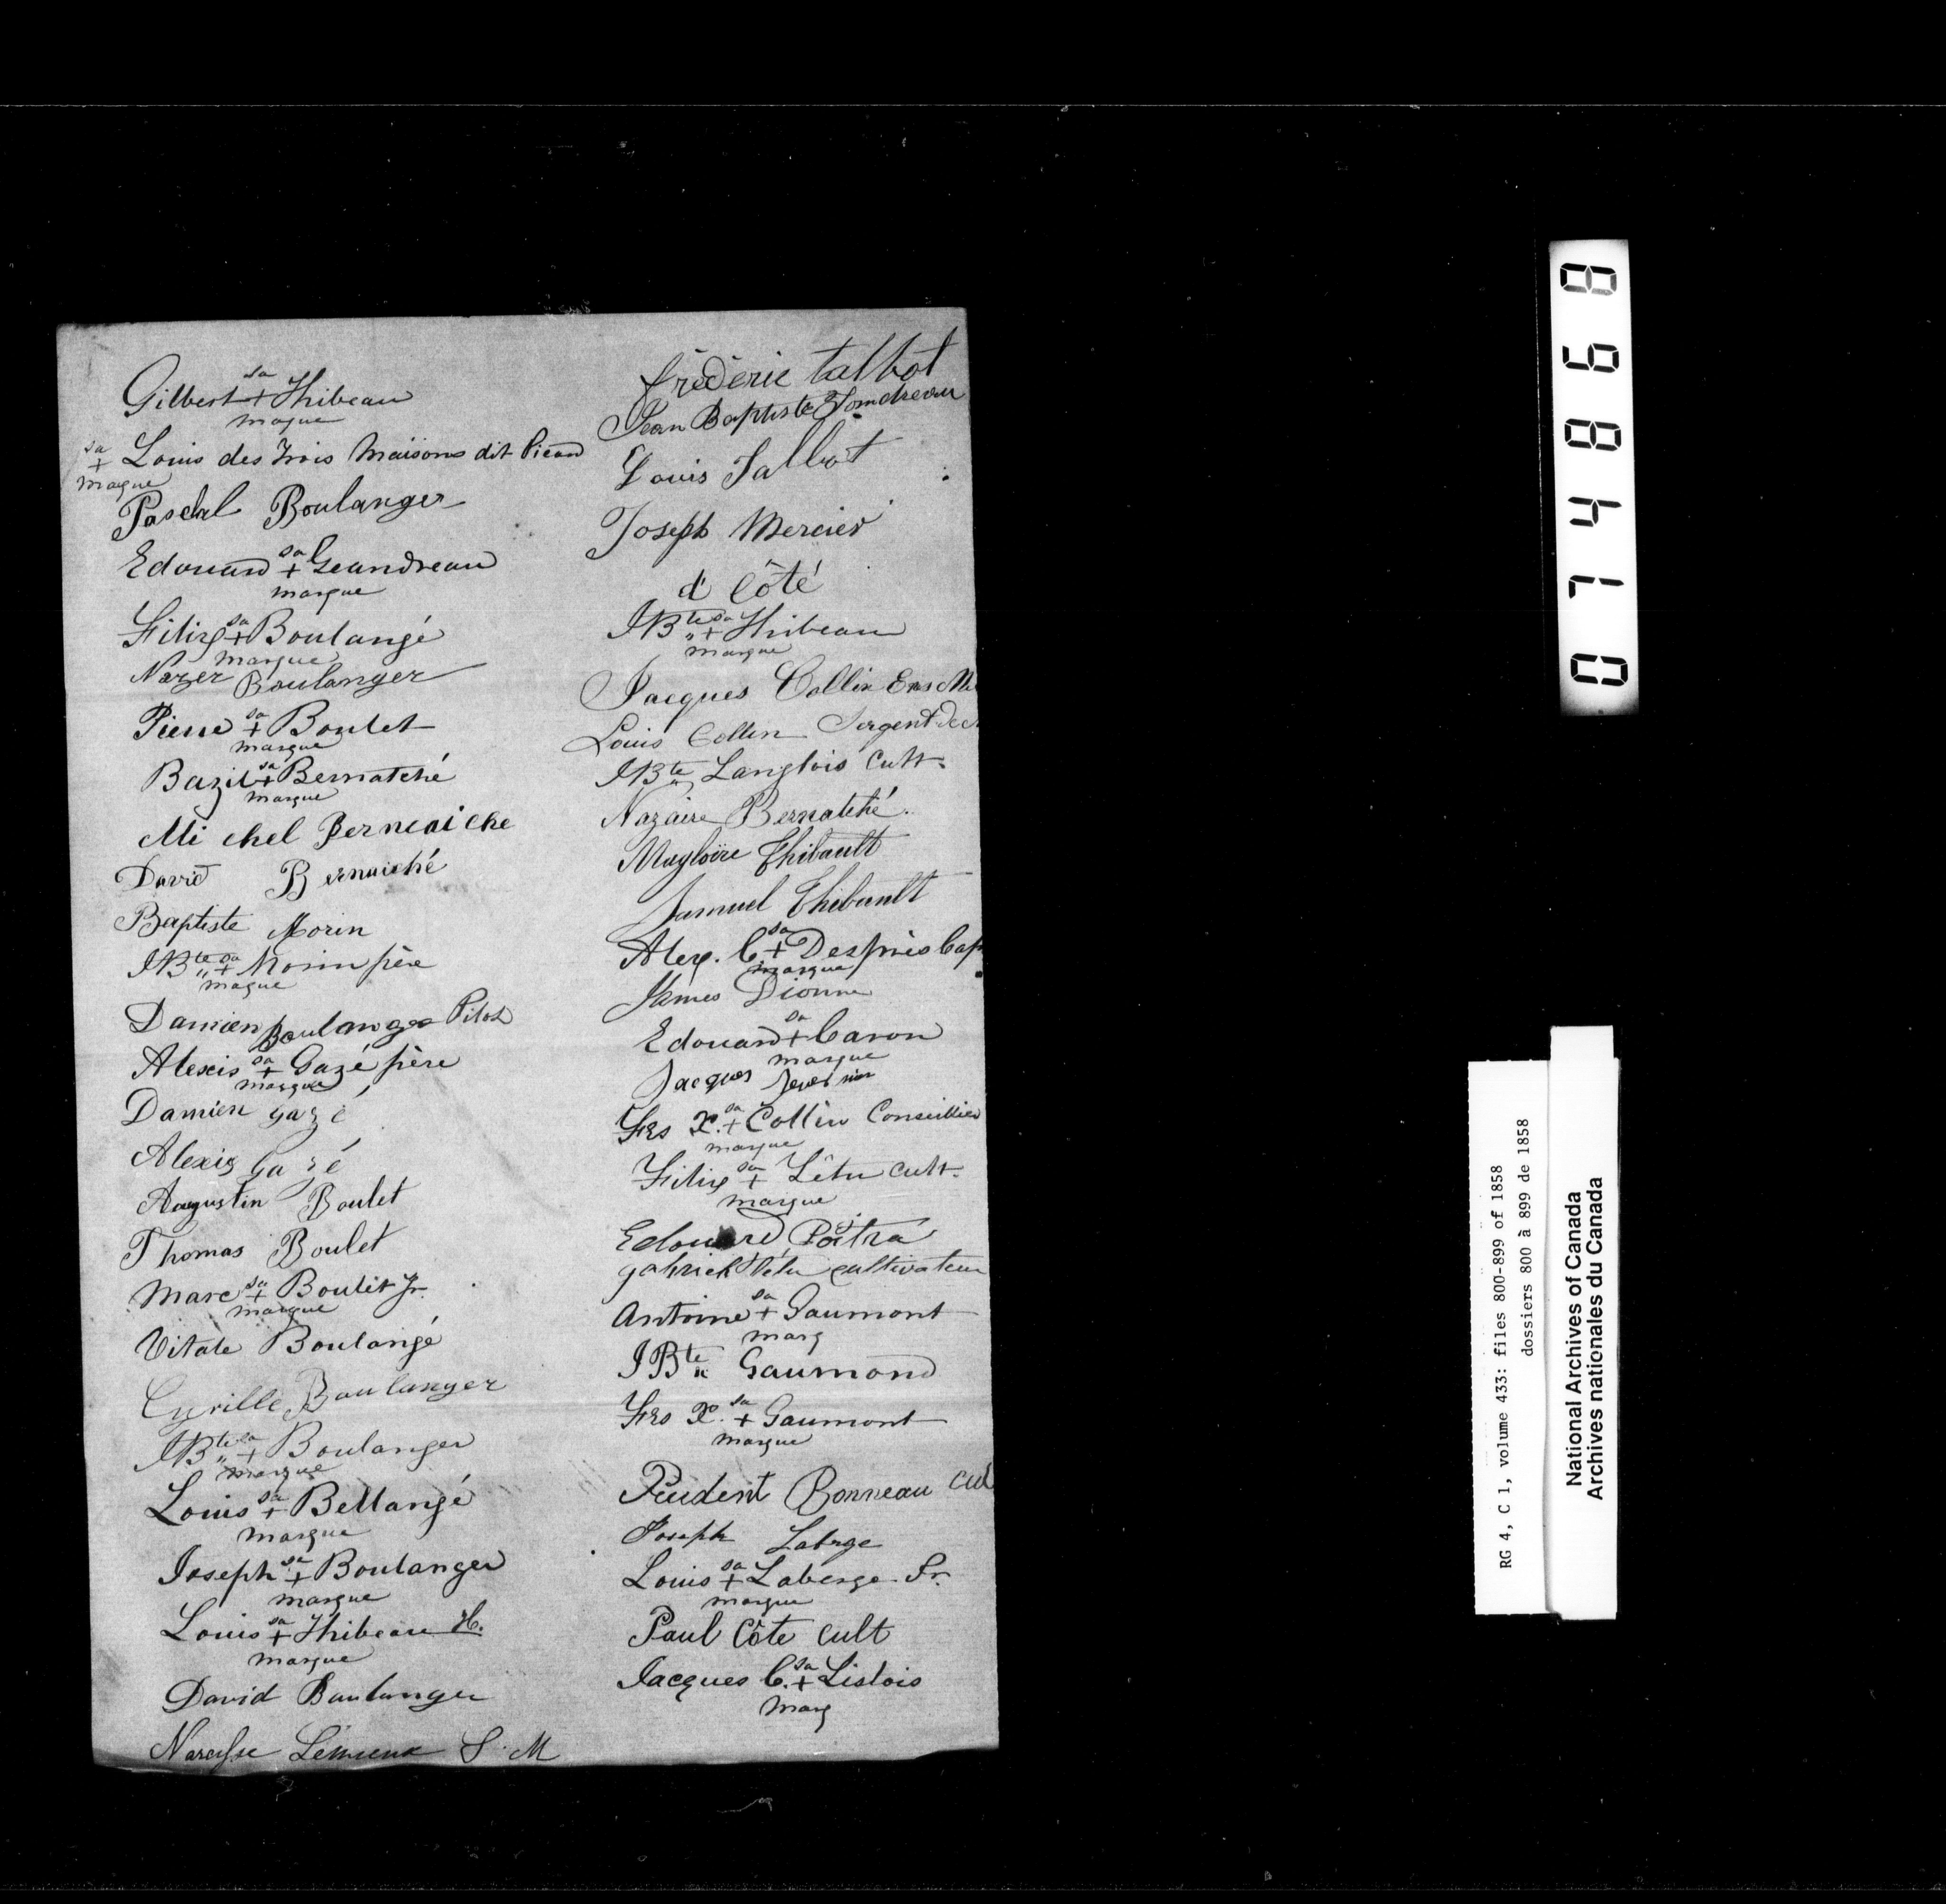 sa
Gilbert + Thibeau
maque
sa
+ Louis des Trois Maisons dit Picard
maque
Pascal Boulanger
sa
Edouard + Geandreau
marque
sa
Félix + Boulangé
marque
Nazer Boulanger
sa
Pierre + Boulet
marque
sa
Bazil + Bernatché
marque
Mi chel Berneaiche
David Bernaiché
Baptiste Morin
JBte sa
+ Morin père
maque
Damien Boulanger Pilot
sa
Alexis + Gazé père
marque
Damien gazé
Alexis Gazé
Augustin Boulet
Thomas Boulet
sa
Marc + Boulet Jr.
marque
Vitale Boulangé
Cyrille Boulanger
JBte sa
+ Boulanger
marque
sa
Louis + Bellangé
marque
sa
Joseph + Boulanger
marque
sa
Louis + Thibeau H.
marque
David Boulanger
Narcisse Lémieux S. M
frédéric talbot
Jean Baptiste
Louis Talbot
Joseph Mercier
d Côté
JBte sa
+ Thibeau
marque
Jacques Collin
Louis Collin Sergent de
JBte Langlois Cult.
Nazaire Bernatché.
Magloire Thibault
Samuel Thibault
sa
Alex. C. + Després Cap
marque
James Dionne
sa
Edouard + Caron
marque
Jacques
sa
Frs X. + Collin Conseillier
marque
sa
Félix + Létu cult.
marque
Edouard Poitra
gabriel létu cultivateur
sa
Antoine + Gaumont
marq
JBte Gaumond
sa
Frs X. + Gaumont
marque
Prudent Bonneau cul
Joseph Labrge
sa
Louis + Laberge Sr.
marque
Paul Côte cult
sa
Jacques C. + Lislois
marq
074868
RG 4, C 1, volume 433: files 800-899 of 1858
dossiers 800 à 899 de 1858
National Archives of Canada
Archives nationales du Canada